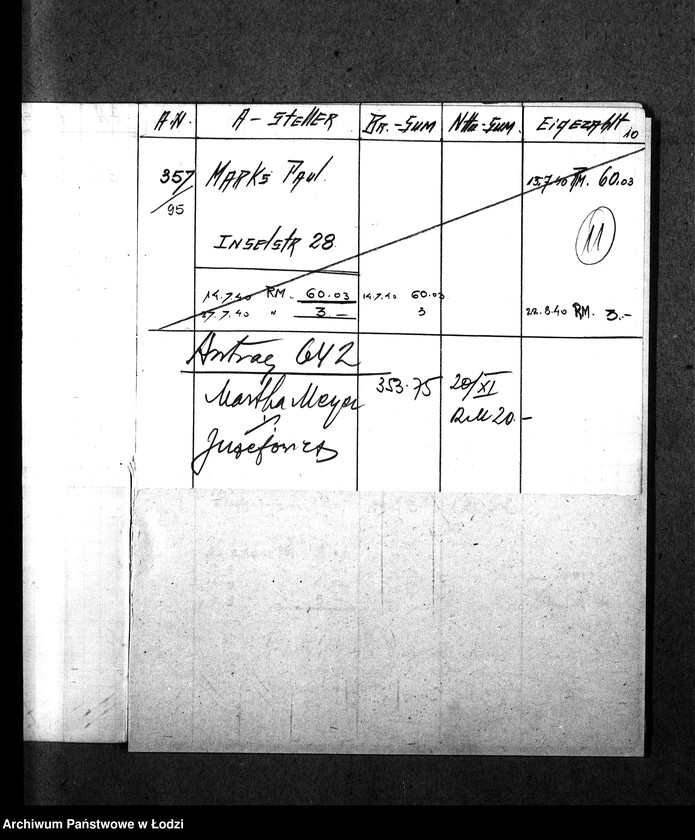 A.N. A - Steller Br.-Sum Ntto-Sum. Eigezahlt 10
357 Marks Paul. 15.7.40 RM. 60.03
95
Inselstr 28 11
14.7.40 RM. 60.03 14.7.40 60.03
27.7.40 " 3.— 3 22.8.40 RM. 3.-
Antrag 642
Martha Meyer 353.75 20/XI
RM 20.-
Juzefowicz
Archiwum Państwowe w Łodzi